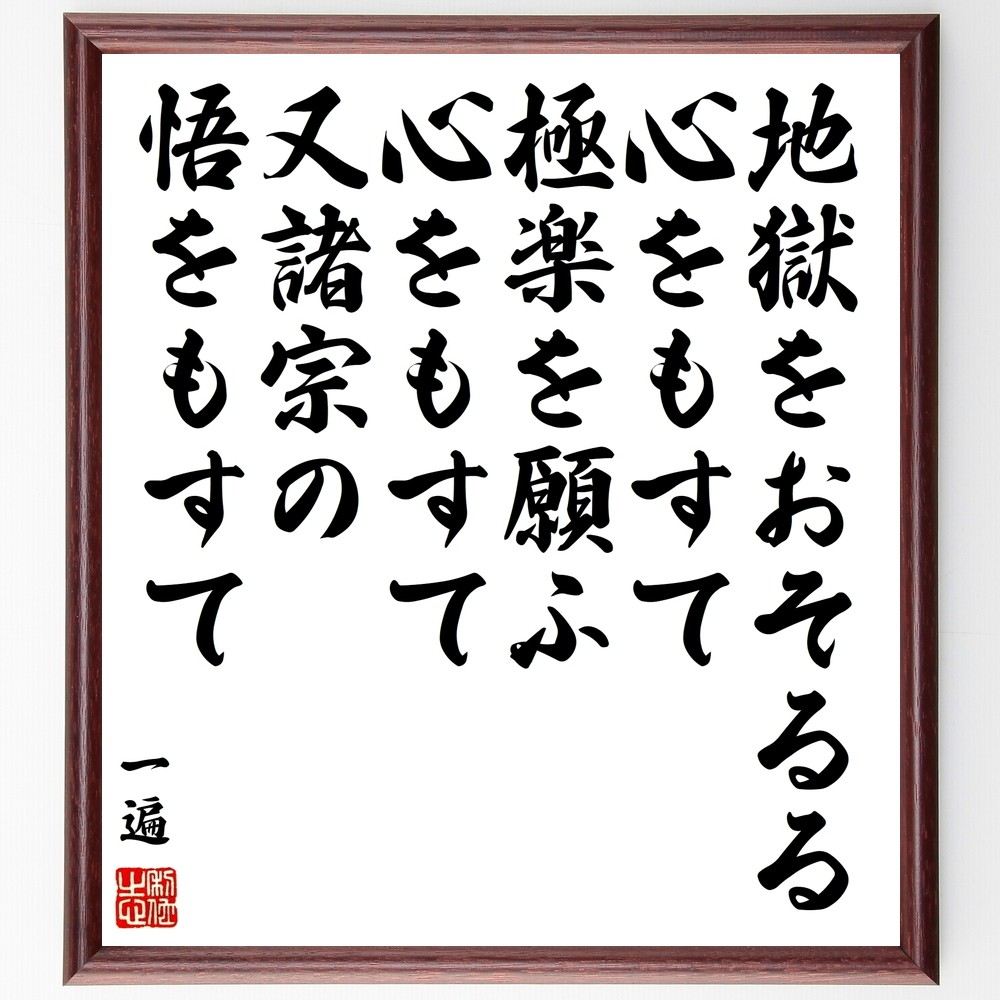 地獄をおそるる
心をもすて
極楽を願ふ
心をもすて
又諸宗の
悟をもすて
一遍